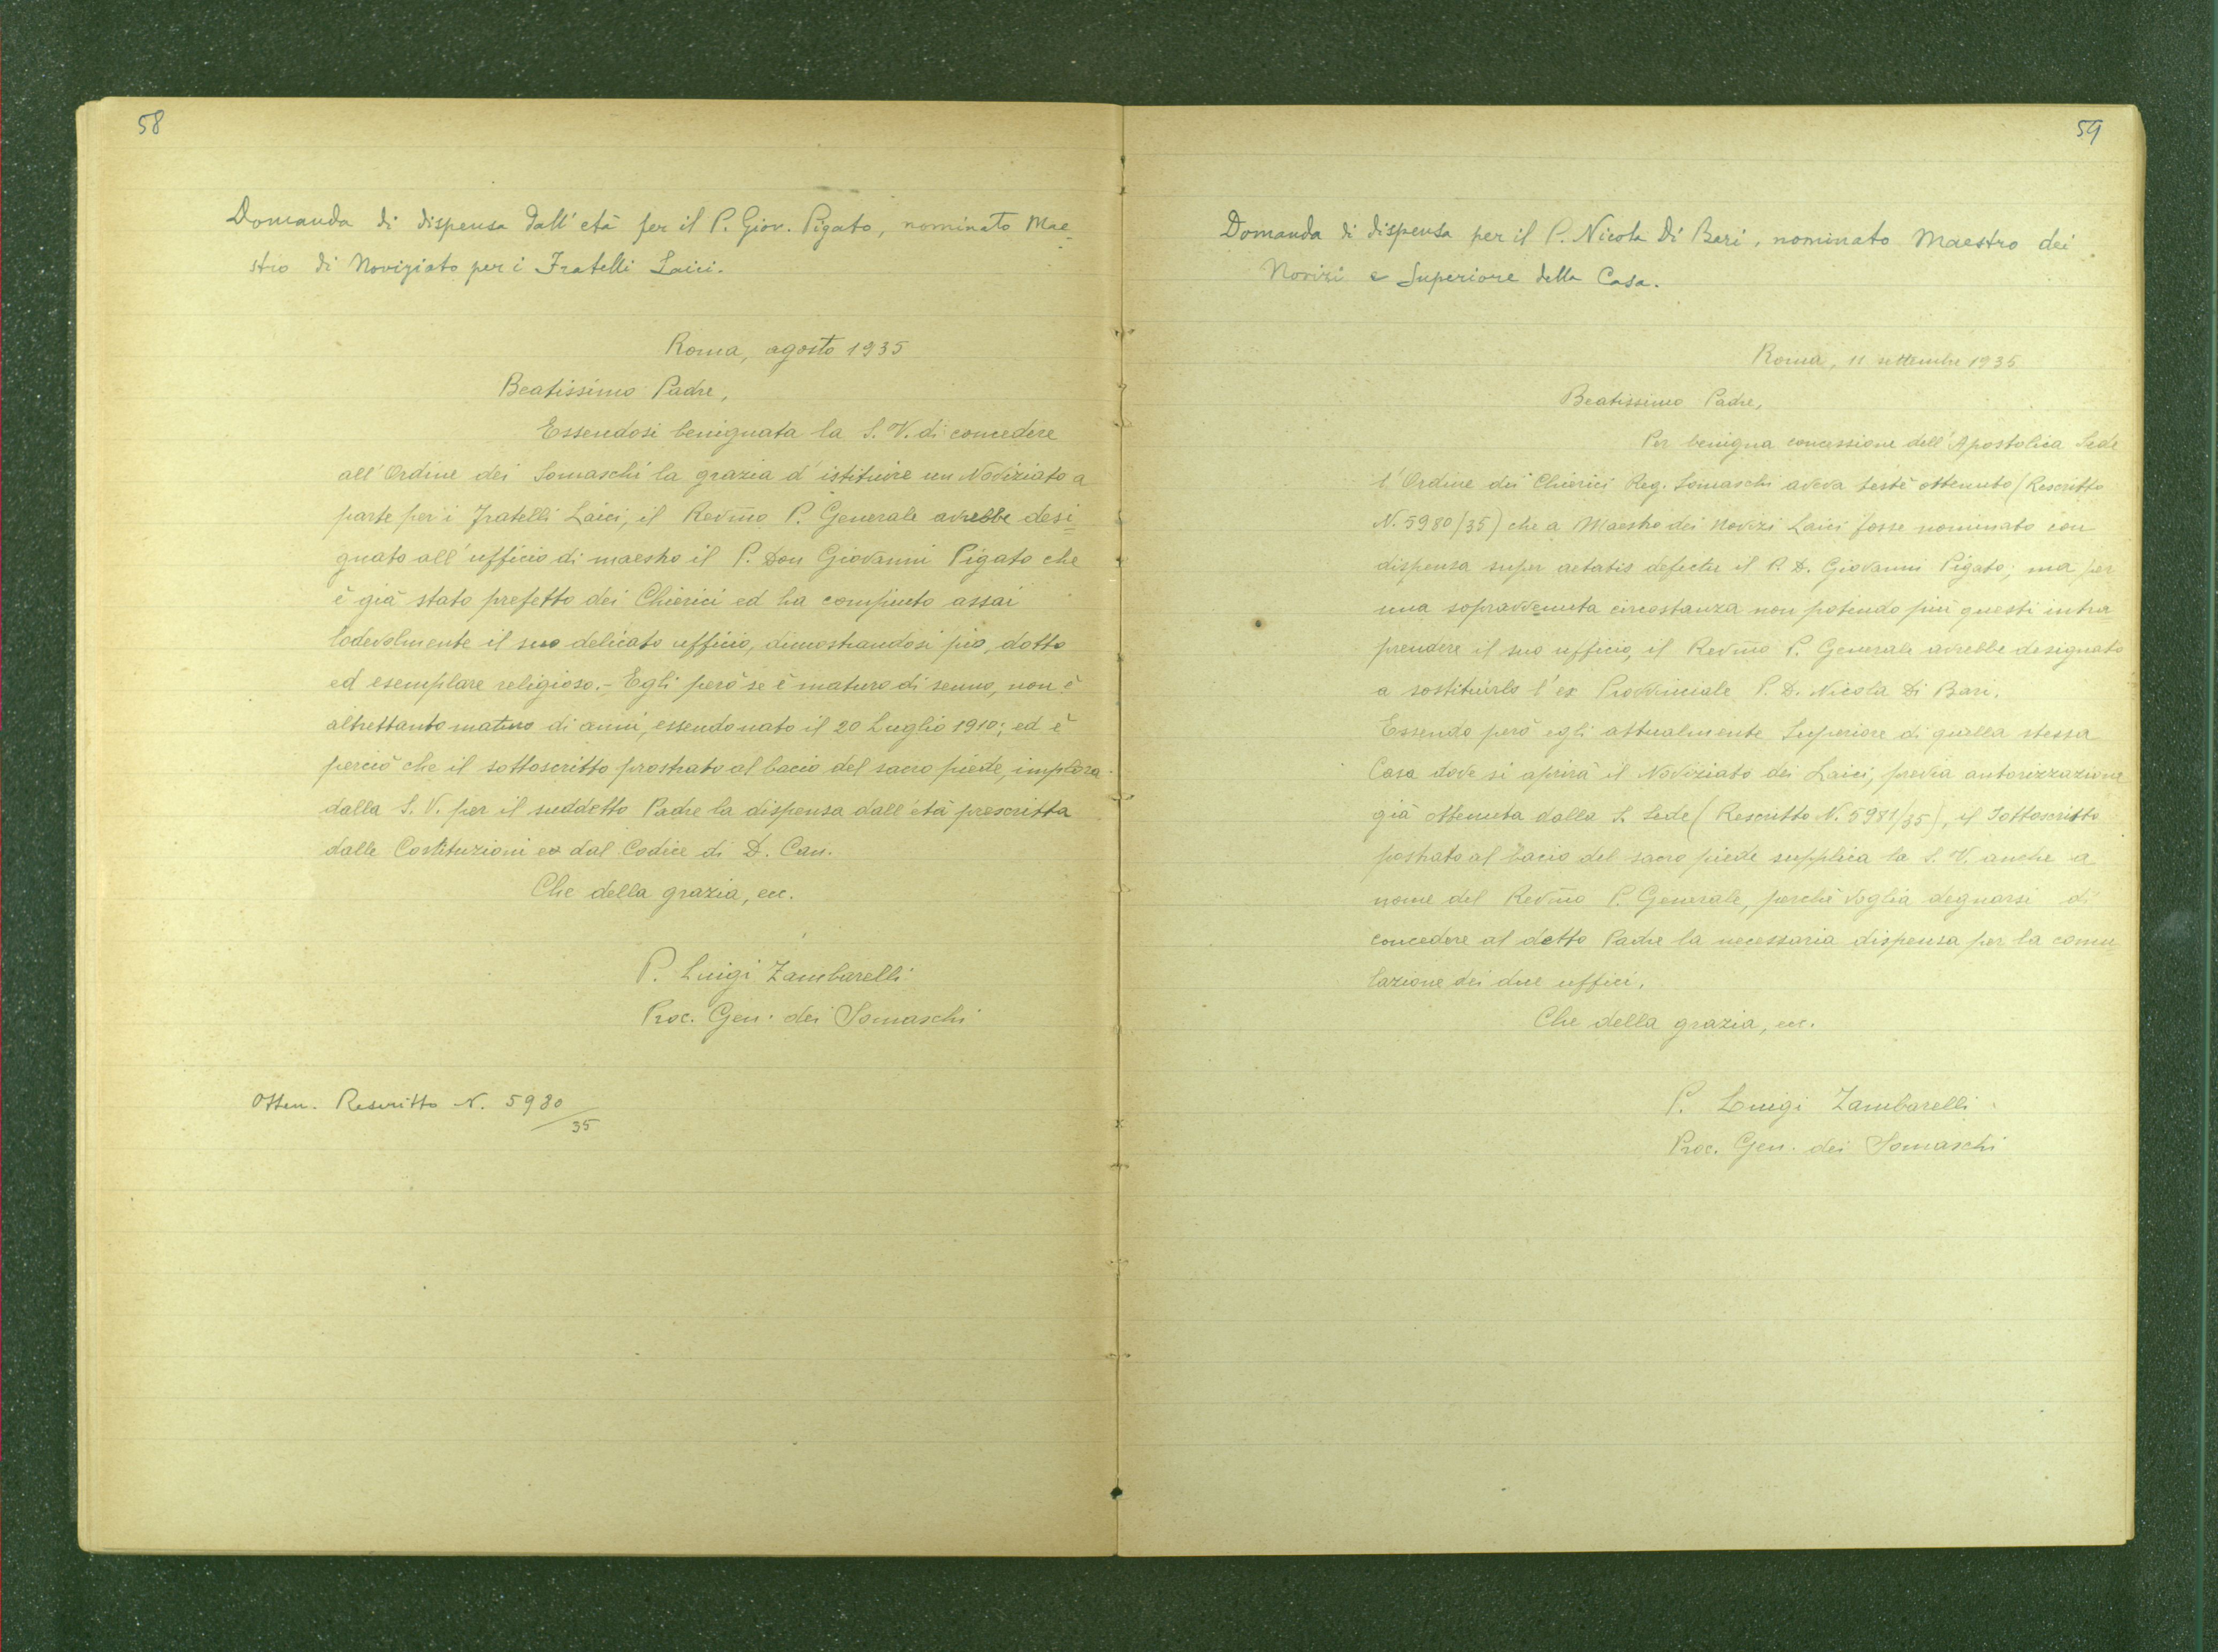 58
Domanda di dispensa dall'età per il P. Giov. Pigato, nominato Mae=
stro di Noviziato per i Fratelli Laici.
Roma, agosto 1935
Beatissimo Padre,
Essendosi benignata la S. V. di concedere
all'Ordine dei Somaschi la grazia d'istituire un Noviziato a
parte per i Fratelli Laici, il Revmo P. Generale avrebbe desi=
gnato all'ufficio di maestro il P. Don Giovanni Pigato che
è già stato prefetto dei Chierici ed ha compiuto assai
lodevolmente il suo delicato ufficio, dimostrandosi pio, dotto
ed esemplare religioso. - Egli però se è maturo di senno, non è
altrettanto maturo di anni, essendo nato il 20 Luglio 1910; ed è
perciò che il sottoscritto prostrato al bacio del sacro piede, implora
dalla S. V. per il suddetto Padre la dispensa dall'età prescritta
dalle Costituzioni e dal Codice di D. Can.
Che della grazia, ecc.
P. Luigi Zambarelli
Proc. Gen. dei Somaschi
Otten. Rescritto N. 5980/35
59
Domanda di dispensa per il P. Nicola Di Bari, nominato Maestro dei
Novizi e Superiore della Casa.
Roma, 11 settembre 1935
Beatissimo Padre,
Per benigna concessione dell'Apostolica Sede
l'Ordine dei Chierici Reg. Somaschi aveva testè ottenuto (Rescritto
N. 5980/35) che a Maestro dei Novizi Laici fosse nominato con
dispensa super aetatis defectu il P. D. Giovanni Pigato; ma per
una sopravvenuta circostanza non potendo più questi intra=
prendere il suo ufficio, il Revmo P. Generale avrebbe designato
a sostituirlo l'ex Provinciale P. D. Nicola Di Bari.
Essendo però egli attualmente Superiore di quella stessa
Casa dove si aprirà il Noviziato dei Laici, previa autorizzazione
già ottenuta dalla S. Sede (Rescritto N. 5981/35), il Sottoscritto
postrato al bacio del sacro piede supplica la S. V. anche a
nome del Revmo P. Generale, perchè voglia degnarsi di
concedere al detto Padre la necessaria dispensa per la comu=
lazione dei due uffici.
Che della grazia, ecc.
P. Luigi Zambarelli
Proc. Gen. dei Somaschi